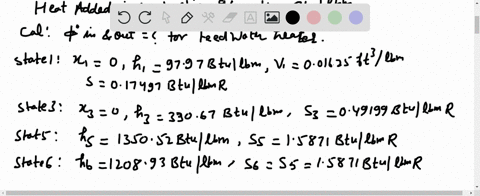 Heat Added in
Cal: ϕ in & out = ? for feedwater heater.
State1: x₁ = 0, h₁ = 97.97 Btu/lbm, V₁ = 0.01625 ft³/lbm
S = 0.17497 Btu/lbm R
State3: x₃ = 0, h₃ = 330.67 Btu/lbm, S₃ = 0.49199 Btu/lbm R
State5: h₅ = 1350.52 Btu/lbm, S₅ = 1.5871 Btu/lbm R
State6: h₆ = 1208.93 Btu/lbm, S₆ = S₅ = 1.5871 Btu/lbm R